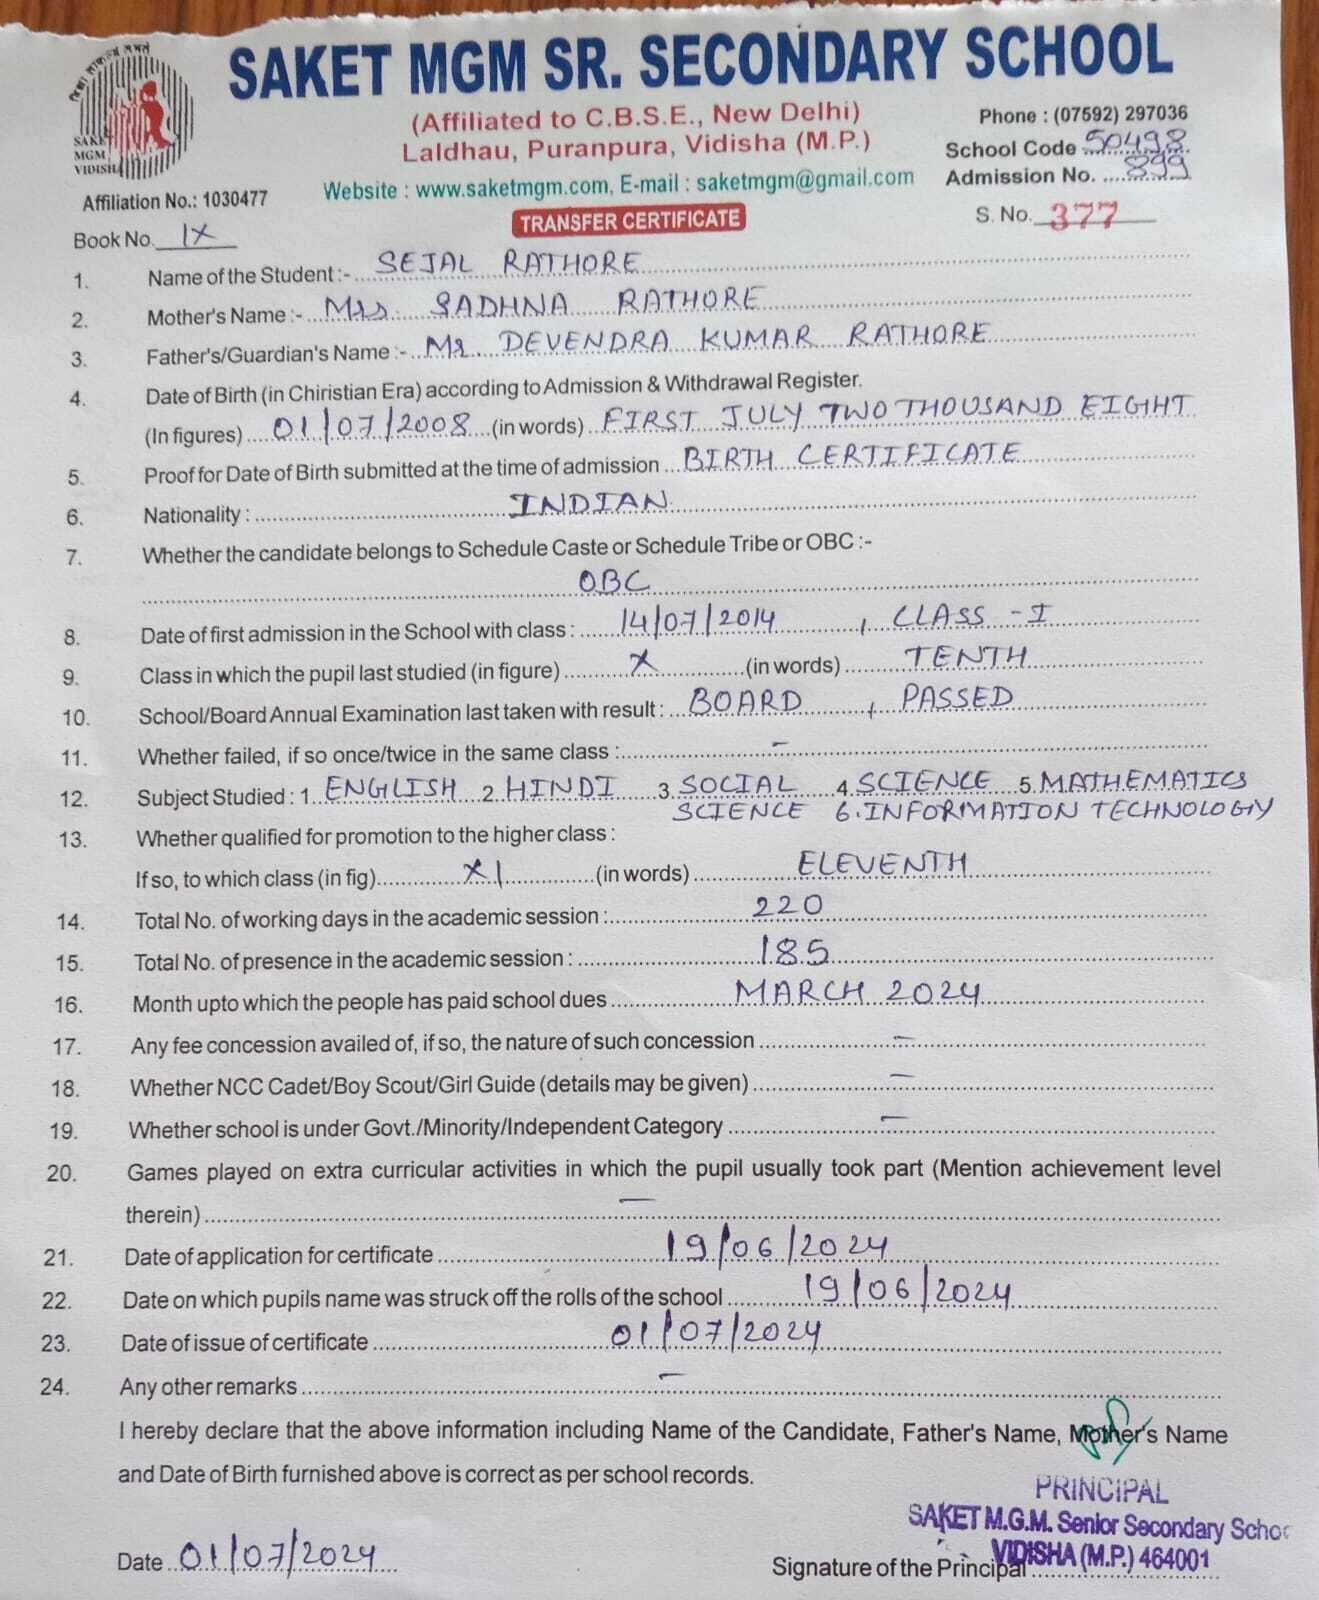 SAKET MGM SR. SECONDARY SCHOOL
(Affiliated to C.B.S.E., New Delhi)
Laldhau, Puranpura, Vidisha (M.P.)
Website : www.saketmgm.com, E-mail : saketmgm@gmail.com
SAKET
MGM
VIDISHA
Affiliation No.: 1030477
Phone : (07592) 297036
School Code 50498
Admission No. 899
Book No. IX
TRANSFER CERTIFICATE
S. No. 377
1. Name of the Student :- SEJAL RATHORE
2. Mother's Name :- Mrs. SADHNA RATHORE
3. Father's/Guardian's Name :- Mr. DEVENDRA KUMAR RATHORE
4. Date of Birth (in Chiristian Era) according to Admission & Withdrawal Register.
(In figures) 01/07/2008 (in words) FIRST JULY TWO THOUSAND EIGHT
5. Proof for Date of Birth submitted at the time of admission BIRTH CERTIFICATE
6. Nationality : INDIAN
7. Whether the candidate belongs to Schedule Caste or Schedule Tribe or OBC :-
OBC
8. Date of first admission in the School with class : 14/07/2014 , CLASS - I
9. Class in which the pupil last studied (in figure) X (in words) TENTH
10. School/Board Annual Examination last taken with result : BOARD , PASSED
11. Whether failed, if so once/twice in the same class : -
12. Subject Studied : 1. ENGLISH 2. HINDI 3. SOCIAL 4. SCIENCE 5. MATHEMATICS
SCIENCE 6. INFORMATION TECHNOLOGY
13. Whether qualified for promotion to the higher class :
If so, to which class (in fig) XI (in words) ELEVENTH
14. Total No. of working days in the academic session : 220
15. Total No. of presence in the academic session : 185
16. Month upto which the people has paid school dues MARCH 2024
17. Any fee concession availed of, if so, the nature of such concession -
18. Whether NCC Cadet/Boy Scout/Girl Guide (details may be given) -
19. Whether school is under Govt./Minority/Independent Category -
20. Games played on extra curricular activities in which the pupil usually took part (Mention achievement level
therein) -
21. Date of application for certificate 19/06/2024
22. Date on which pupils name was struck off the rolls of the school 19/06/2024
23. Date of issue of certificate 01/07/2024
24. Any other remarks -
I hereby declare that the above information including Name of the Candidate, Father's Name, Mother's Name
and Date of Birth furnished above is correct as per school records.
PRINCIPAL
SAKET M.G.M. Senior Secondary Schoo
VIDISHA (M.P.) 464001
Date 01/07/2024
Signature of the Principal